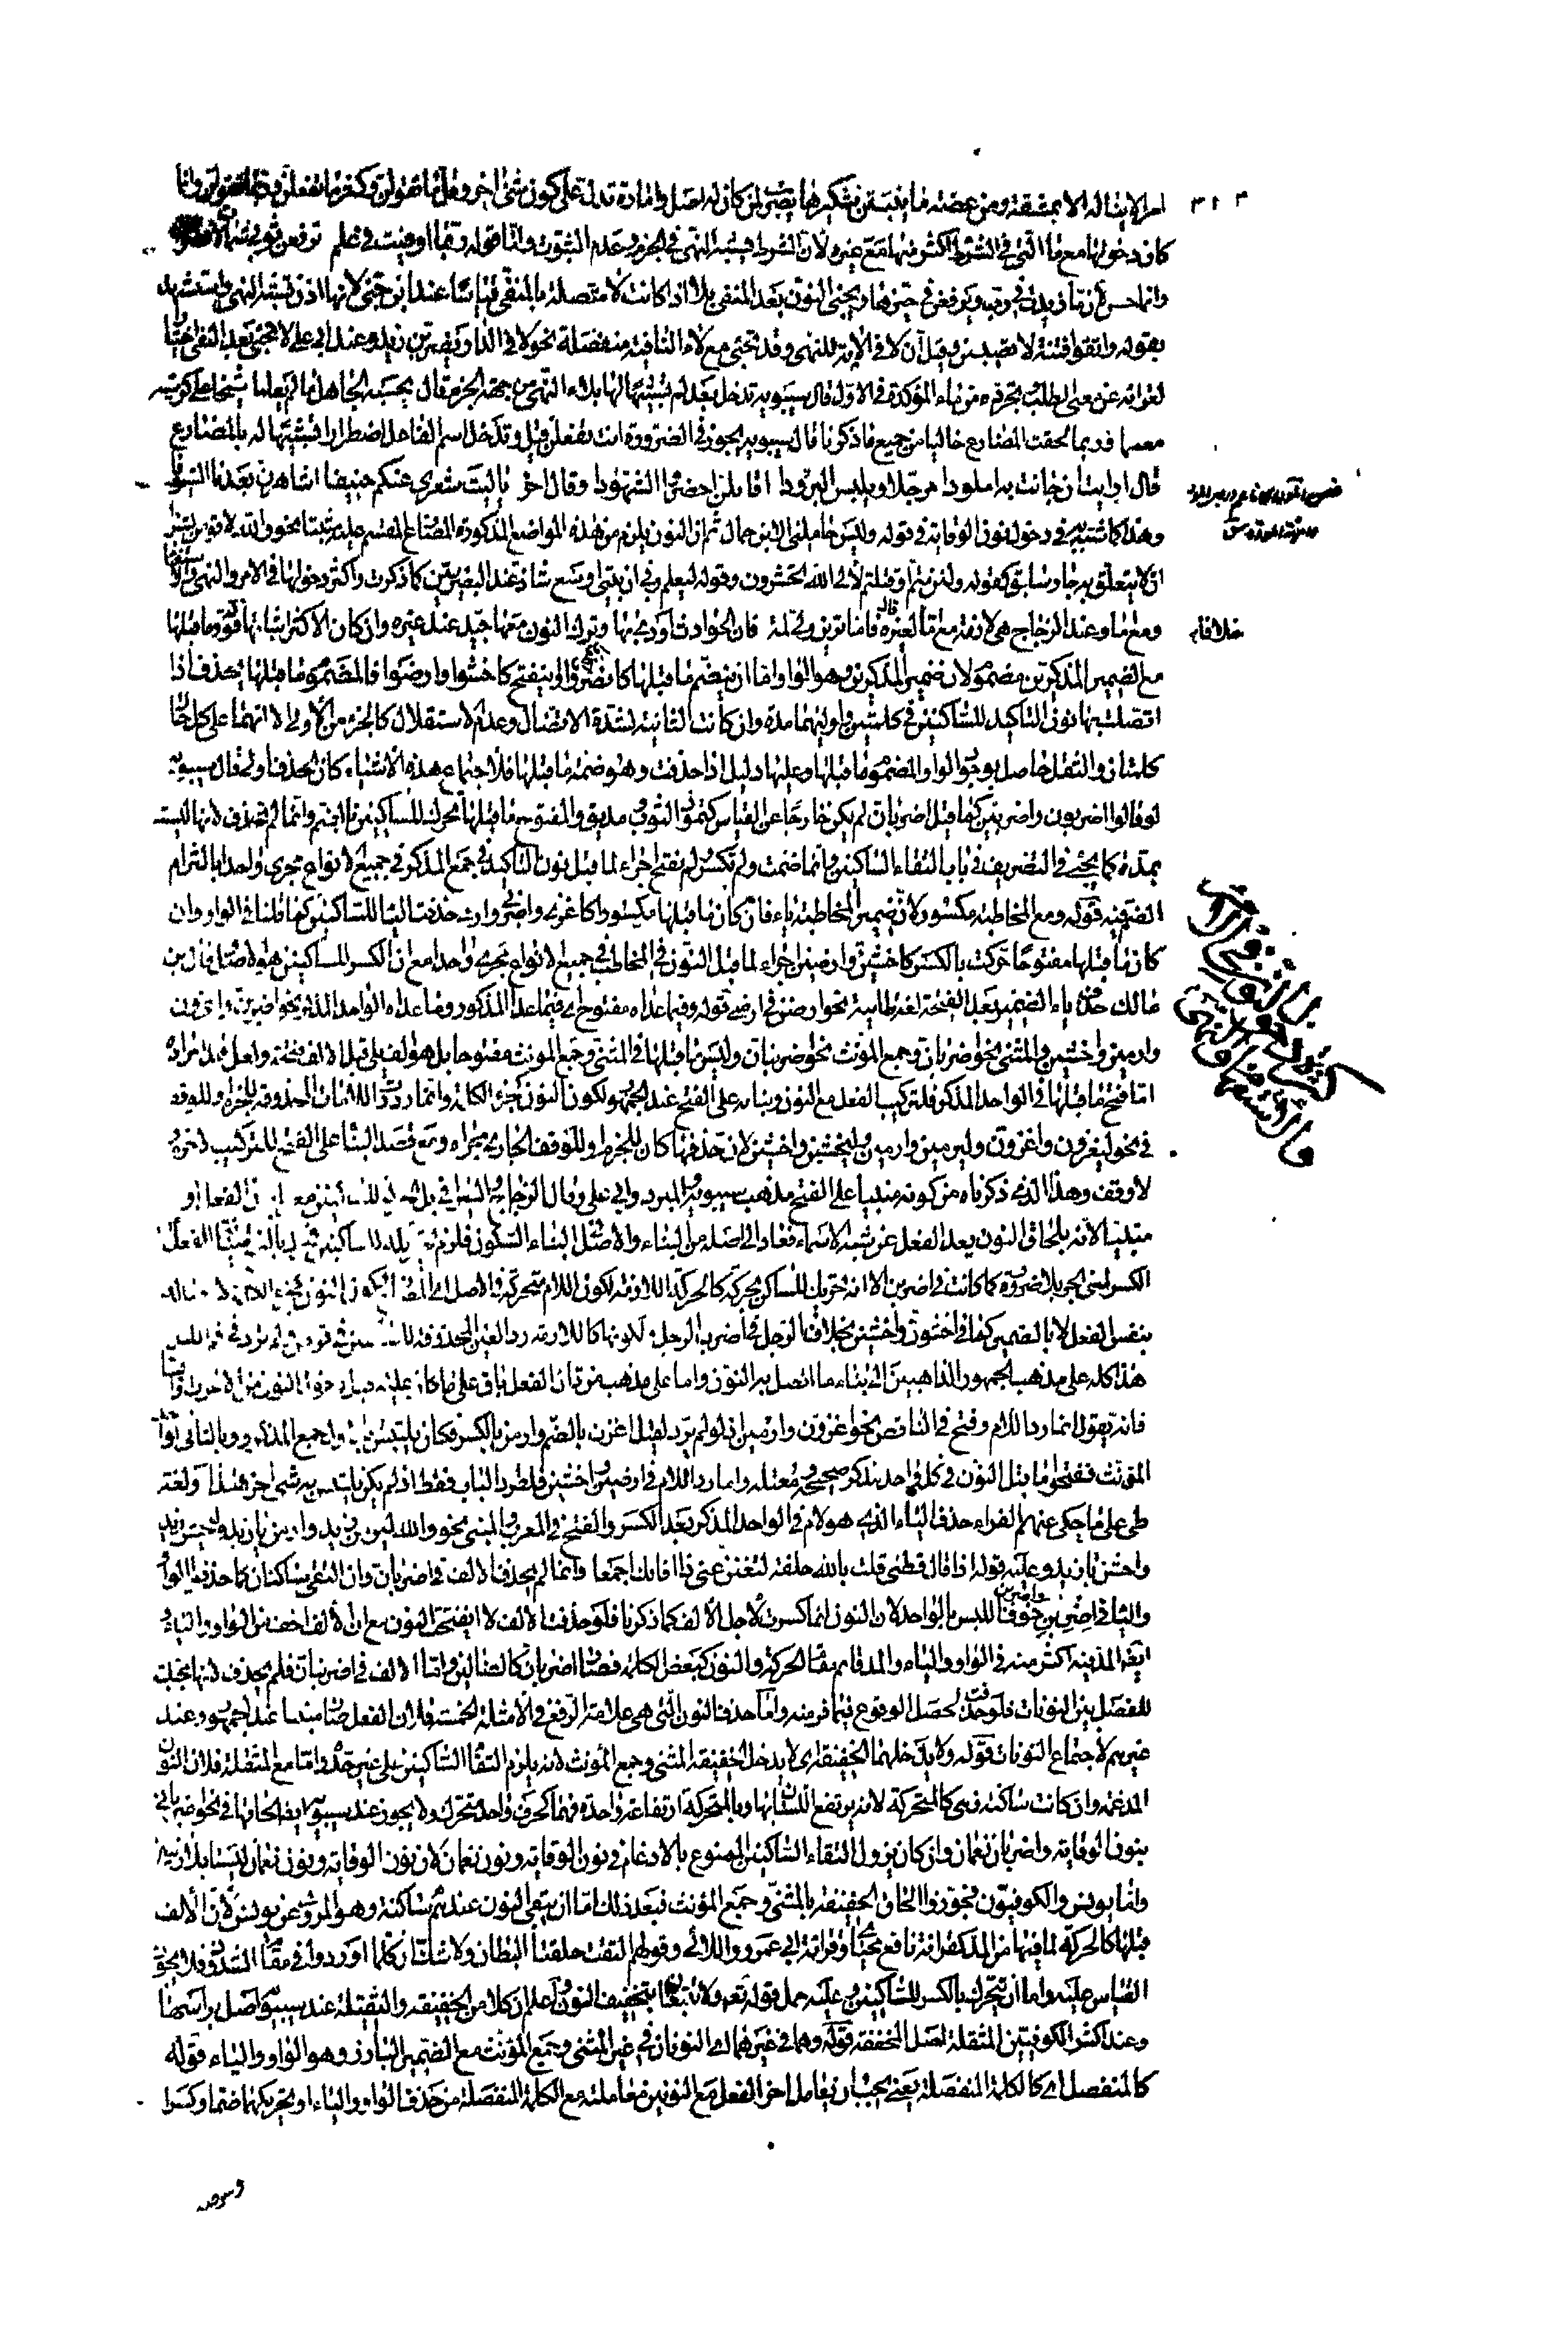 امر لا يناله الا بمشقة ومن عضة ما ينبتن شكيرها يضرب لمن كان له اصل وامارة تدل على كون شئ اخر وقلما تقولن وكثر ما تفعلن
كان دخولها مع ما التي في الشرط اكثر منها مع غيره لان الشرط يشبه النهي في الجزم وعدم الثبوت واما قوله ربما اوفيت في علم ترفعن ثوبي شمالات
وانما حسن لان ما زيدت في رب وترفعن في حيزها ويجئ النون بعد المنفي بلا اذا كانت لا متصلة بالمنفي قياسا عند ابن جني لانها اذن تشبه النهي واستشهد
بقوله واتقوا فتنة لا تصيبن وقيل ان لا في الاية للنهي وقد تجئ مع لاء النافية منفصلة نحو لا في الدار يضربن زيد وعند ابي علي لا تجئ بعد النفي اختيارا
لعرائه عن معنى الطلب وتجرده من ماء المؤكدة في الاول قال سيبويه تدخل بعد لم تشبيها لها بلاء النهي من جهة الجزم قال يحسبه الجاهل ما لم يعلما شيخا على كرسيه
معمما وربما لحقت المضارع خاليا من جميع ما ذكرنا قال سيبويه يجوز في الضرورة انت تفعلن قيل وتدخل اسم الفاعل اضطرارا لشبهها له بالمضارع
قال اريت ان جاءت به املودا مرجلا ويلبس البرودا اقائلن احضروا الشهودا وقال اخر يا ليت شعري عنكم حنيفا اشاهرن بعدنا السيوفا
وهذا كما شبه في دخول نون الوقاية في قوله وليس حاملني الا ابن حمال ثم ان النون يلزم من هذه المواضع المذكورة المضارع المقسم عليه مثبتا نحو والله لاقومن بشرط
ان لا يتعلق به جار سابق كقوله ولئن متم او قتلتم لالى الله تحشرون وقوله ليعلم ربي ان بيتي اوسع شاذ عند البصريين كما ذكرت واكثر دخولها في الامر والنهي والاستفهام
ومع اما وعند الزجاج هي لازمة مع اما لغيره قال فاما تريني ولي لمة فان الحوادث اودى بها وترك النون معها جيد عند غيره وان كان الاكثر اثباتها قوله وما قبلها
مع الضمير المذكرين مضموم لان ضمير المذكرين وهو الواو اما ان ينضم ما قبلها كانصروا او ينفتح كاخشوا وارضوا فالمضموم ما قبلها يحذف اذا
اتصلت بها نون التاكيد للساكنين في كلمتين واوليهما مدة وان كانت الثانية لشدة الاتصال وعدم الاستقلال كالجزء من الاولى الا انهما على كل حال
كلمتان والثقل حاصل بوجود الواو المضموم ما قبلها وعليها دليل اذا حذفت وهو ضمة ما قبلها فلاجتماع هذه الاشياء كان الحذف اولى قال سيبويه
لو قالوا اضربون واضربين كما قيل اضربان لم يكن خارجا عن القياس كتمود الثوب ومديق والمفتوح ما قبلها تحرك للساكنين بالضم وانما لم تحذف لانها ليست
بمدة كما يجئ في التصريف في باب التقاء الساكنين وانما ضمت ولم تكسر ولم تفتح اجراء لما قبل نون التاكيد في جمع المذكر في جميع الانواع مجرى واحدا بالتزام
الضم فيه قوله ومع المخاطبة مكسور لان ضمير المخاطبة ياء فان كان ما قبلها مكسورا كاغزي واضربي وارمي حذفت الياء للساكنين كما قلنا في الواو وان
كان ما قبلها مفتوحا حركت بالكسر كاخشين وارضين اجراء لما قبل النون في المخاطب في جميع الانواع مجرى واحدا مع ان الكسر للساكنين هو الاصل قال ابن
مالك حذف ياء الضمير بعد الفتحة لغة طائية نحو ارضن في ارضي قوله وفيما عداه مفتوح اي فيما عدا المذكور وما عداه الواحد المذكر نحو اضربن واغزون
وارمين واخشين والمثنى نحو اضربان وجمع المؤنث نحو اضربنان وليس ما قبلها في المثنى وجمع المؤنث مفتوحا بل هو الف بلى قبل الالف فتحة ولعل هذا مراده
اما فتح ما قبلها في الواحد المذكر فلتركيب الفعل مع النون وبنائه على الفتح عند الجمهور لكون النون كجزء الكلمة وانما ردت اللامات المحذوفة للجزم او للوقف
في نحو ليغزون واغزون وليرمين وارمين وليخشين واخشين لان حذفها كان للجزم او للوقف الجاري مجراه ومع قصد البناء على الفتح للتركيب لا جزم
لا وقف وهذا الذي ذكرناه من كونه مبنيا على الفتح مذهب سيبويه والمبرد وابي علي وقال الزجاج والسيرافي بل الحركة للساكنين معربا كان الفعل او
مبنيا لانه بلحاق النون بعد الفعل عن شبه الاسماء فعاد الى اصله من البناء والاصل في البناء السكون فلزم تحريكه للساكنين
الكسر لمعنى الجر بلا ضرورة كما كانت في اضربن الا ان تحريك للساكن بحركة كالحركة اللازمة لكون اللام متحركة في الاصل
بنفس الفعل لا بالضمير كما في اخشون واخشين بخلاف الرجل في اضرب الرجل لكونها كاللازمة رد العين المحذوفة للساكنين في قومن ولم ترد في قم الليل
هذا كله على مذهب الجمهور الذاهبين الى بناء ما اتصل به النون واما على مذهب من قال ان الفعل باق على ما كان عليه قبل دخول النون من الاعراب والبناء
فانه يقول انما رد اللام وفتح في الناقص نحو اغزون وارمين اذ لو لم يرد لقيل اغزن بالضم وارمن بالكسر فكان يلتبس بالاول جمع المذكر وبالثاني الواحد
المؤنث ففتح ما قبل النون في كل واحد مذكر صحيحه ومعتله وانما رد اللام في ارضين واخشين طردا للباب فقط اذ لم يكن يلتبس به شئ اخر هذا ولغة
طي على ما حكى عنهم الفراء حذف الياء الذي هو لام في الواحد المذكر بعد الكسر والفتح في المعرب والمبني نحو والله ليرمن زيد وارمن يا زيد وليخشن زيد
واخشن يا زيد وعليه قوله اذا قال قطني قلت بالله حلفة لتغنن عني ذا انائك اجمعا وانما لم يحذف الالف في اضربان وان التقى ساكنان كما حذف الواو
والياء في اضربن واضربن خوف اللبس بالواحد لان النون انما كسرت لاجل الالف كما ذكرنا فلو حذفت الالف لانفتحت النون مع ان الالف اخف من الواو والياء
ايضا المد فيه اكثر منه في الواو والياء والمد قائم مقام الحركة والنون كبعض الكلمة فصار اضربان كالضالين واما الالف في اضربنان فلم يحذف لانها مجتلبة
للفصل بين النونات فلو حذفت لحصل الوقوع فيما فر منه واما حذف النون التي هي علامة الرفع في الامثلة الخمسة فلان الفعل صار مبنيا عند الجمهور وعند
غيرهم لاجتماع النونات قوله ولا يدخلهما الخفيفة اي لا يدخل الخفيفة المثنى وجمع المؤنث لانه يلزم التقاء الساكنين على غير حده واما مع المثقلة فلان النون
المدغمة وان كانت ساكنة فهي كالمتحركة لانه يرتفع اللسان بها وبالمتحركة ارتفاعة واحدة فهما كحرف واحد متحرك ولا يجوز عند سيبويه ايضا الحاقها في نحو اضربانى
بنون الوقاية واضربان نعمان وان كان يزول التقاء الساكنين الممنوع بالادغام في نون الوقاية ونون نعمان لان نون الوقاية ونون نعمان ليستا بلازمتين
واما يونس والكوفيون فجوزوا الحاق الخفيفة بالمثنى وجمع المؤنث فبعد ذلك اما ان يبقى النون عندهم ساكنة وهو المروي عن يونس لان الالف
قبلها كالحركة لما فيها من المد كقراءة نافع محياي وقراءة ابي عمرو واللائي وقولهم التقت حلقتا البطان ولا شك ان كلما اوردوه في مقام الشذوذ فلا يجوز
القياس عليه واما ان يتحرك بالكسر للساكنين وعليه حمل قوله تعه ولا تتبعان بتخفيف النون واعلم ان كلا من الخفيفة والثقيلة عند سيبويه اصل براسها
وعند اكثر الكوفيين المثقلة اصل المخففة قوله وهما في غيرهما اي النونان في غير المثنى وجمع المؤنث مع الضمير البارز وهو الواو والياء قوله
كالمنفصل اي كالكلمة المنفصلة يعني يجب ان يعامل اخر الفعل مع النونين معاملته مع الكلمة المنفصلة من حذف الواو والياء او تحريكهما ضما وكسرا